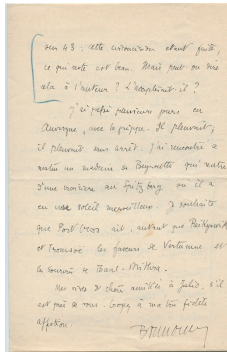 sur 43 : cette
ce qui reste est beau. Mais peut-on dire
cela à l'auteur ? L'accepterait-il ?
J'ai passé plusieurs jours en
Auvergne, avec la grippe. Il pleuvait,
il pleuvait sans arrêt. J'ai rencontré ce
matin un médecin de qui rentre
d'une croisière au Spitzberg où il a
eu un soleil merveilleux. Je souhaite
que Port Cros ait, autant que Reikjavik
et Tromsoë les faveurs de Vertumne et
le sourire de
Mes vives et chères amitiés à
est près de vous. Croyez à ma bien fidèle
affection.